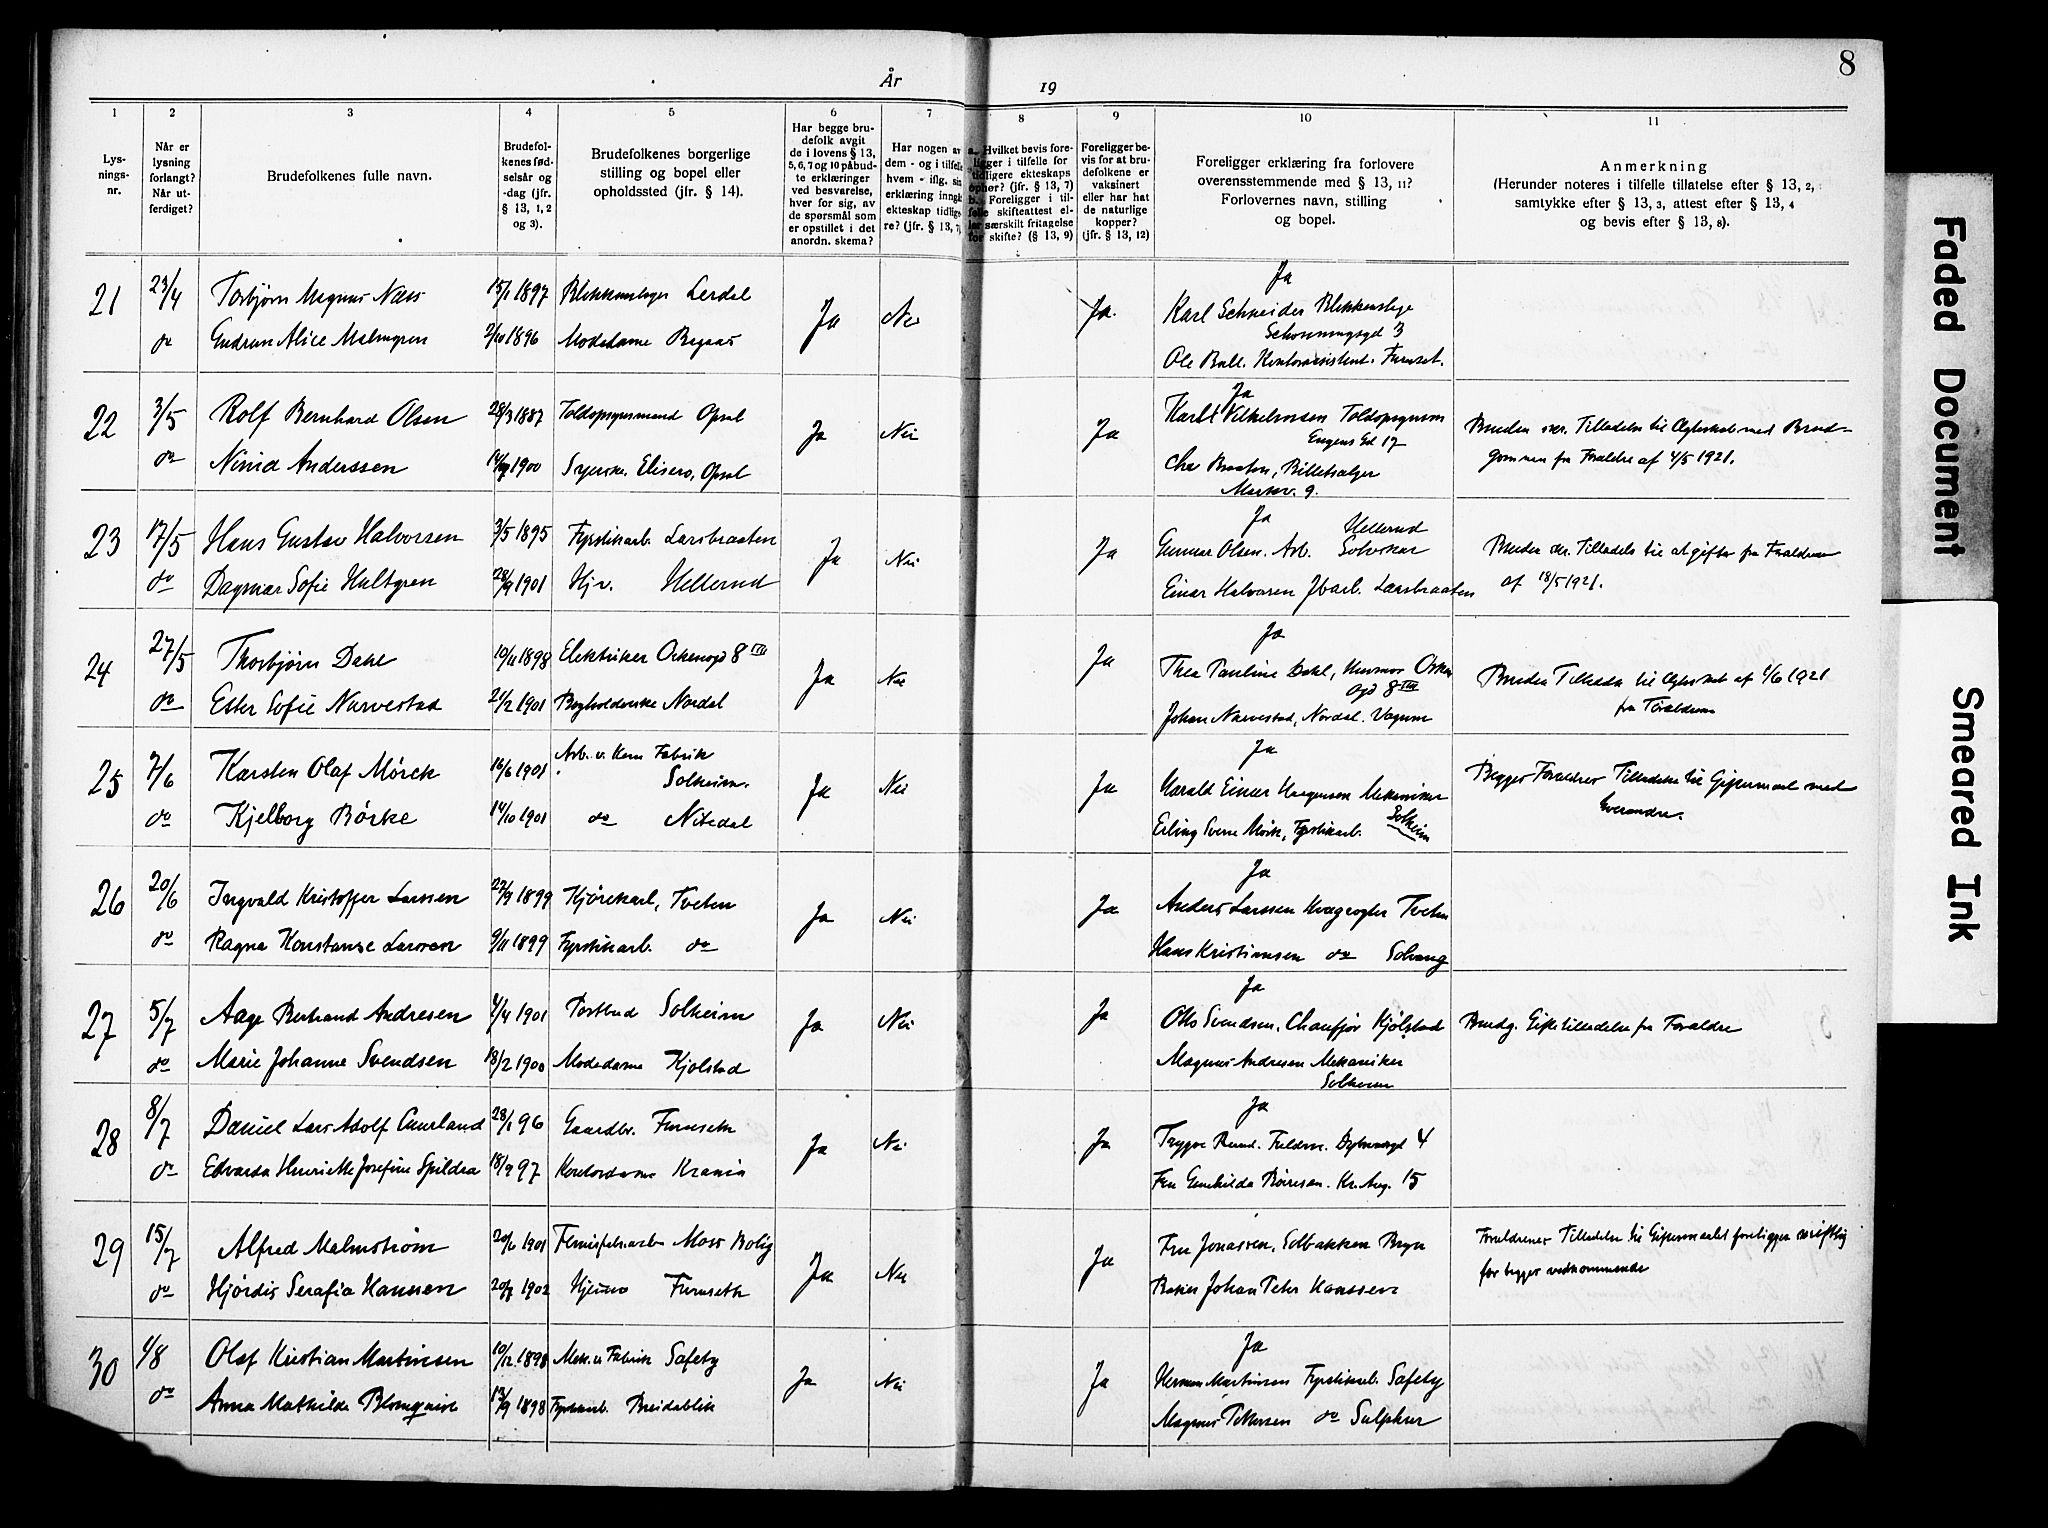 8
År 19
1 2 3 4 5 6 7 8 9 10 11
Lys-
nings-
nr.
Når er
lysning
forlangt?
Når ut-
ferdiget?
Brudefolkenes fulle navn.
Brudefol-
kenes fød-
selsår og
-dag (jfr.
§ 13, 1, 2
og 3).
Brudefolkenes borgerlige
stilling og bopel eller
opholdssted (jfr. § 14).
Har begge bru-
defolk avgit
de i lovens § 13,
5, 6, 7 og 10 påbud-
te erklæringer
ved besvarelse,
hver for sig, av
de spørsmål som
er opstillet i det
anordn. skema?
Har nogen av
dem - og i tilfelle
hvem - iflg. sin
erklæring inngåt
ekteskap tidlige-
re? (jfr. § 13, 7)
a. Hvilket bevis fore-
ligger i tilfelle for
tidligere ekteskaps
ophør? (jfr. § 13, 7)
b. Foreligger i til-
felle skifteattest el-
ler særskilt fritagelse
for skifte? (§ 13, 9)
Foreligger be-
vis for at bru-
defolkene er
vaksinert
eller har hat
de naturlige
kopper?
(jfr. § 13, 12)
Foreligger erklæring fra forlovere
overensstemmende med § 13, 11?
Forlovernes navn, stilling
og bopel.
Anmerkning
(Herunder noteres i tilfelle tillatelse efter § 13, 2,
samtykke efter § 13, 3, attest efter § 13, 4
og bevis efter § 13, 8).
21 23/4 Torbjørn Magnus Næss 15/1 1897 Blikkenslager Lerdal Ja Nei Ja. Ja
Karl Schneider Blikkenslage
Schouningsgd 3
do Gudrun Alice Malmgren 1896 Modedame
Ole Kontorassistent. Furuset.
22 3/5 Rolf Bernhard Olsen 28/3 1887 Toldopsynsmand Opsal Ja Nei Ja Ja
Karl Vilhelmsen Toldopsynsm
Eugens Gd 17
Bruden skr. Tilladelse til Egteskab med Brud-
gommen fra Forældre af 4/5 1921.
do Anderssen 1900 Syerske. Opsal
Braaten, Billetsælger
Markv. 9.
23 17/5 Hans Gustav Halvorsen 3/5 1895 Fyrstikarb. Larsbraaten Ja Nei Ja Ja
Gunnar Olsen. Arb. Hellerud
Solvskar
Bruden skr. Tilladels til at gifte fra Forældrene
af 18/5 1921.
do Dagmar Sofie Hultgren 28/9 1901 Hjv. Hellerud
Einar Halvorsen Larsbraaten
24 27/5 Thorbjørn Dahl 10/11 1898 Elektriker 8 III Ja Nei Ja Ja
Thea Pauline Dahl,
8 III
Bruden Tilladelse til Egteskab af 1/6 1921
fra Forældrene
do Ester Sofie Narvestad 21/2 1901 Nordal
Johan Narvestad, Nordal.
25 7/6 Karsten Olaf Mörck 16/6 1901 Arb. v. Kem Fabrik
Solheim. Ja Nei Ja Ja
Harald Einar Mekaniker
Solheim
Begges Forældres Tilladelse til Giftermaal med
hverandre.
do Kjelborg Börke 14/10 1901 do Nitedal
Erling Sverre Mörk, Fyrstikarb.
26 20/6 Ingvald Kristoffer Larssen 27/9 1899 Kjörekarl, Tveten Ja Nei Ja Ja
Anders Larssen Kvægrogter Tveten
do Ragna Konstanse Larssen 9/11 1899 Fyrstikarb. do
Hans Kristiansen do Solvang
27 5/7 Aage Bertrand Andresen 4/4 1901 Postbud Solheim Ja Nei Ja Ja
Otto Svendsen, Chauffør Kjölstad
Brudg. Giftetilladelse fra Forældre
do Marie Johanne Svendsen 18/2 1900 Modedame Kjölstad
Magnus Andresen Mekaniker
Solheim
28 8/7 Daniel Lars Adolf Aurland 28/1 96 Gaardbr. Furuseth Ja Nei Ja Ja
Trygve 4
do Edvarda Henriette Josefine Spildra 18/9 97 Kontordame Krania
Fru Gunhilda Kr. Aug. 15
29 15/7 Alfred Malmström 20/6 1901 Moss Bolig Ja Nei Ja
Fru Jonassen, Solbakken Bryn
Forældrenes Tilladelse til Giftermaalet foreligger skriftlig
for begges vedkommende
do Hjördis Serafia Hansen 20/7 1902 Furuseth
Johan Peter Hanssen
30 1/8 Olaf Kristian Martinsen 10/12 1898 Mek. v Fabrik Safety Ja Nei Ja Ja
Herman Martinsen Fyrstikarb. Safety
do Anna Mathilde Blomqvist 13/9 1898 Fyrstikarb. Breidablik
Magnus Pettersen do Sulphur
Faded Document
Smeared Ink